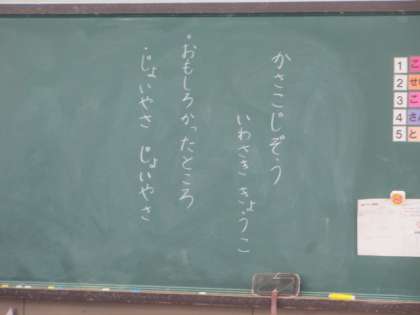 かさこじぞう
いわさききょうこ
・おもしろかったところ
・じょいやさ じょいやさ
1 こ
2 せ
3 こ
4 さ
5 と